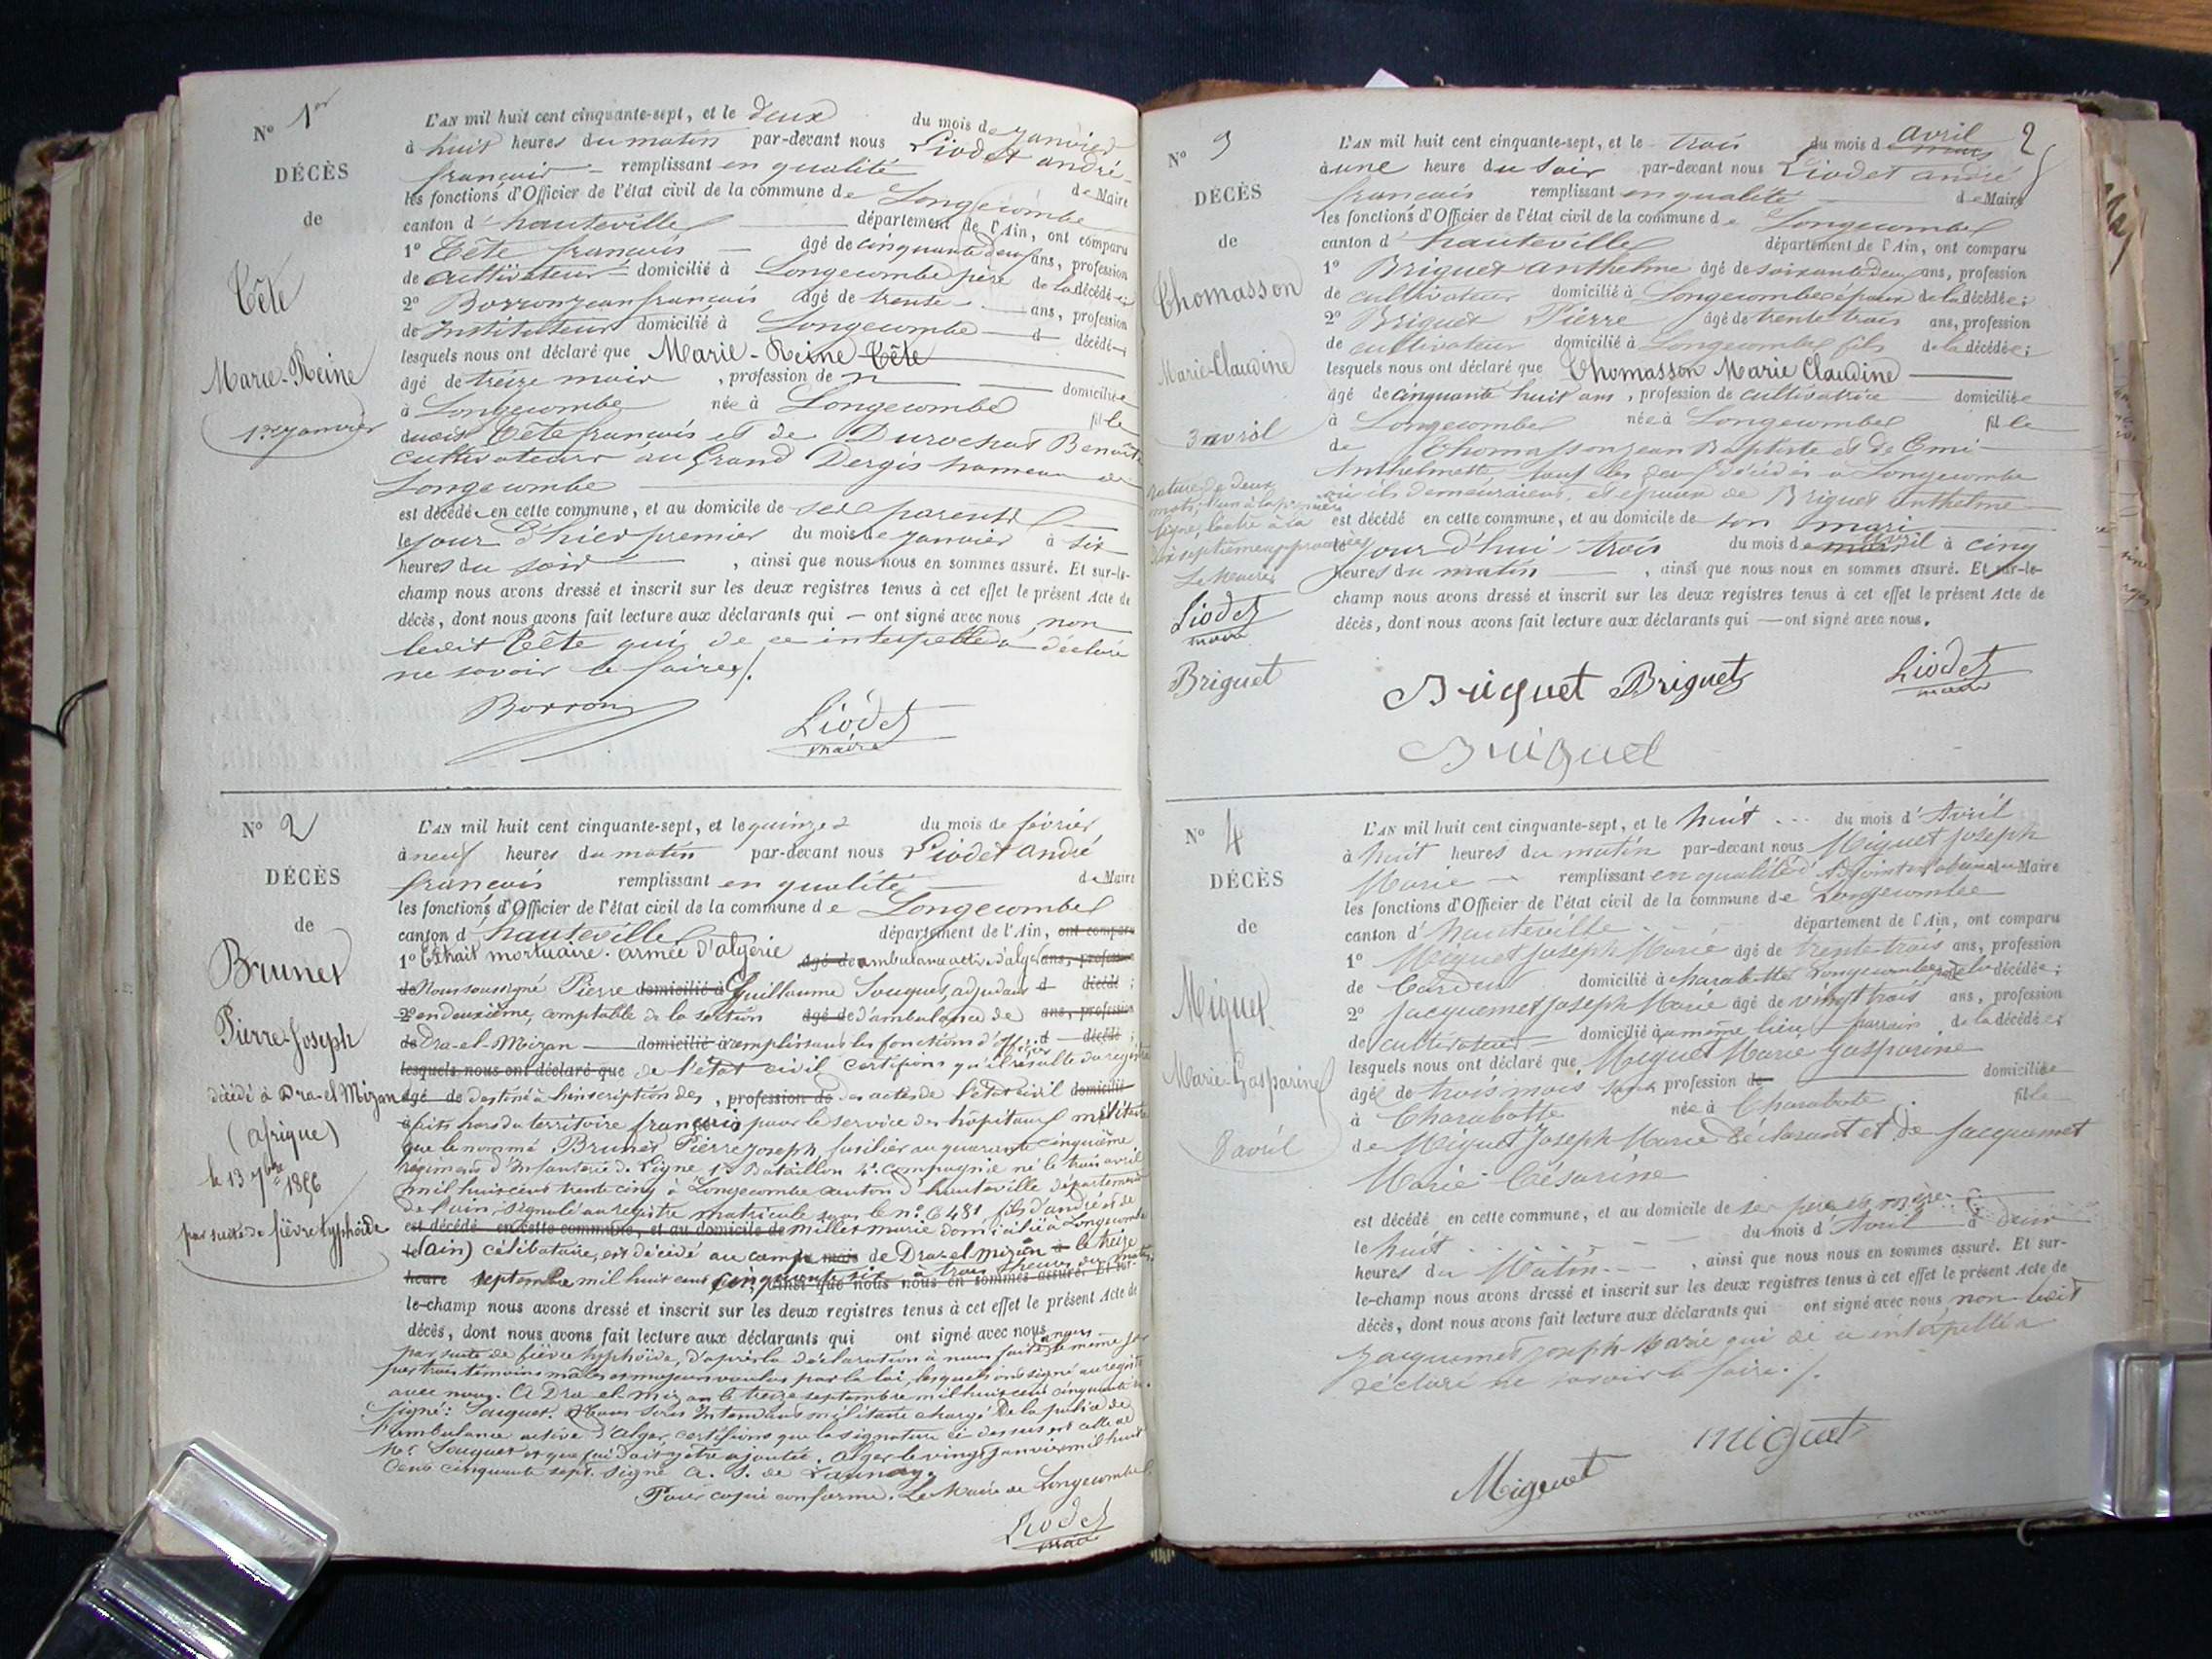 No 1er
DÉCÈS
de
Tête
Marie-Reine
1er janvier
L'AN mil huit cent cinquante-sept, et le deux du mois de janvier
à huit heures du matin par-devant nous Liodet andré
françois remplissant en qualité de Maire
les fonctions d'Officier de l'état civil de la commune de Longecombe
canton d'hauteville département de l'Ain, ont comparu
1º Tête françois âgé de cinquante deux ans, profession
de cultivateur domicilié à Longecombe père de la décédée
2º Borron jean françois âgé de trente ans, profession
de Instituteur domicilié à Longecombe d décédé
lesquels nous ont déclaré que Marie-Reine Tête
âgé de treize mois, profession de n domiciliée
à Longecombe née à Longecombe fille
dudit Tête françois et de Durochat Benoîte
cultivateurs au Grand Dergis hameau de
Longecombe
est décédée en cette commune, et au domicile de ses parents
le jour d'hier premier du mois de janvier à six
heures du soir, ainsi que nous nous en sommes assuré. Et sur-le-
champ nous avons dressé et inscrit sur les deux registres tenus à cet effet le présent Acte de
décès, dont nous avons fait lecture aux déclarants qui — ont signé avec nous, non
ledit Tête qui de ce interpellé a déclaré
ne savoir le faire./.
Borron
Liodet
maire
No 2
DÉCÈS
de
Brunet
Pierre-Joseph
décédé à Dra-el Mizan
(afrique)
le 13 7bre 1856
par suite de fièvre typhoïde
L'AN mil huit cent cinquante-sept, et le quinze du mois de février
à neuf heures du matin par-devant nous Liodet andré
françois remplissant en qualité de Maire
les fonctions d'Officier de l'état civil de la commune de Longecombe
canton d'hauteville département de l'Ain, ont comparu
1º Extrait mortuaire. armée d'algérie âgé de ambulance active d'alger ans, profession
de Nous soussigné Pierre domicilié à Guillaume Souquet, adjudant d décédé ;
2º en deuxième, comptable de la section âgé de d'ambulance de ans, profession
de Dra-el-Mizan domicilié à remplissant les fonctions d'officier d décédé ;
lesquels nous ont déclaré que de l'état civil certifions qu'il résulte du registre
âgé de destiné à l'inscription des, profession de des actes de l'état civil domicilié
à faits hors du territoire français pour le service des hôpitaux militaires
que le nommé Brunet Pierre joseph, fusilier au quarante cinquième
régiment d'Infanterie de Ligne 1er Bataillon 4e compagnie né le trois avril
mil huit cent trente cinq à Longecombe canton d'hauteville département
de l'ain, signalé au registre matricule sous le nº 6481 fils d'andré et de
est décédé en cette commune, et au domicile de Millet marie domicilié à Longecombe
le (ain) célibataire, est décédé au camp mois de Dra-el-mizan à le treize
heure septembre mil huit cent cinquante six à trois heures du matin, ainsi que nous nous en sommes assuré. Et sur-
le-champ nous avons dressé et inscrit sur les deux registres tenus à cet effet le présent Acte de
décès, dont nous avons fait lecture aux déclarants qui ont signé avec nous
par suite de fièvre typhoïde, d'après la déclaration à nous faite le même jour
par trois témoins mâles et majeurs voulus par la loi, lesquels ont signé au registre
avec nous. A Dra-el-mizan le treize septembre mil huit cent cinquante six.
Signé: Souquet. Nous Sous Intendant militaire chargé de la police de
l'ambulance active d'Alger certifions que la signature ci dessus est celle de
Mr. Souquet et que foi doit y être ajoutée. Alger le vingt janvier mil huit
cent cinquante sept. signé A. S. de Launay.
Pour copie conforme. Le Maire de Longecombe
Liodet
maire
2
No 3
DÉCÈS
de
Thomasson
Marie-Claudine
3 avril
rature de deux
mots, l'un à la première
ligne, l'autre à la
dix septième approuvées
Le Maire
Liodet
maire
Briguet
L'AN mil huit cent cinquante-sept, et le trois du mois d avril mars
à une heure du soir par-devant nous Liodet andré
françois remplissant en qualité de Maire
les fonctions d'Officier de l'état civil de la commune de Longecombe
canton d'hauteville département de l'Ain, ont comparu
1º Briguet anthelme âgé de soixante deux ans, profession
de cultivateur domicilié à Longecombe époux de la décédée ;
2º Briguet Pierre âgé de trente trois ans, profession
de cultivateur domicilié à Longecombe fils de la décédée ;
lesquels nous ont déclaré que Thomasson Marie Claudine
âgé de cinquante huit ans, profession de cultivatrice domiciliée
à Longecombe née à Longecombe fille
de Thomasson jean Baptiste et de
Anthelmette, tous les deux décédés à Longecombe
où ils demeuraient, et épouse de Briguet anthelme
est décédé en cette commune, et au domicile de son mari
le jour d'hui trois du mois de mars avril à cinq
heures du matin, ainsi que nous nous en sommes assuré. Et sur-le-
champ nous avons dressé et inscrit sur les deux registres tenus à cet effet le présent Acte de
décès, dont nous avons fait lecture aux déclarants qui — ont signé avec nous.
Briguet Briguet
Liodet
maire
Briguet
No 4
DÉCÈS
de
Miguet
Marie-Gasparine
8 avril
L'AN mil huit cent cinquante-sept, et le huit du mois d'Avril
à huit heures du matin par-devant nous Miguet Joseph
Marie remplissant en qualité d'Adjoint en l'absence du Maire
les fonctions d'Officier de l'état civil de la commune de Longecombe
canton d'hauteville département de l'Ain, ont comparu
1º Miguet Joseph Marie âgé de trente trois ans, profession
de Cardeur domicilié à charabotte Longecombe père de la décédée ;
2º Jacquemet Joseph Marie âgé de vingt trois ans, profession
de cultivateur domicilié au même lieu parrain de la décédée ;
lesquels nous ont déclaré que Miguet Marie Gasparine
âgé de trois mois sans profession de domiciliée
à Charabotte née à Charabote fille
de Miguet Joseph Marie déclarant et de Jacquemet
Marie Césarine
est décédé en cette commune, et au domicile de ses père et mère
le huit du mois d'Avril à deux
heures du Matin, ainsi que nous nous en sommes assuré. Et sur-
le-champ nous avons dressé et inscrit sur les deux registres tenus à cet effet le présent Acte de
décès, dont nous avons fait lecture aux déclarants qui ont signé avec nous non ledit
Jacquemet Joseph Marie qui de ce interpellé a
déclaré ne savoir le faire./.
Miguet
miguet